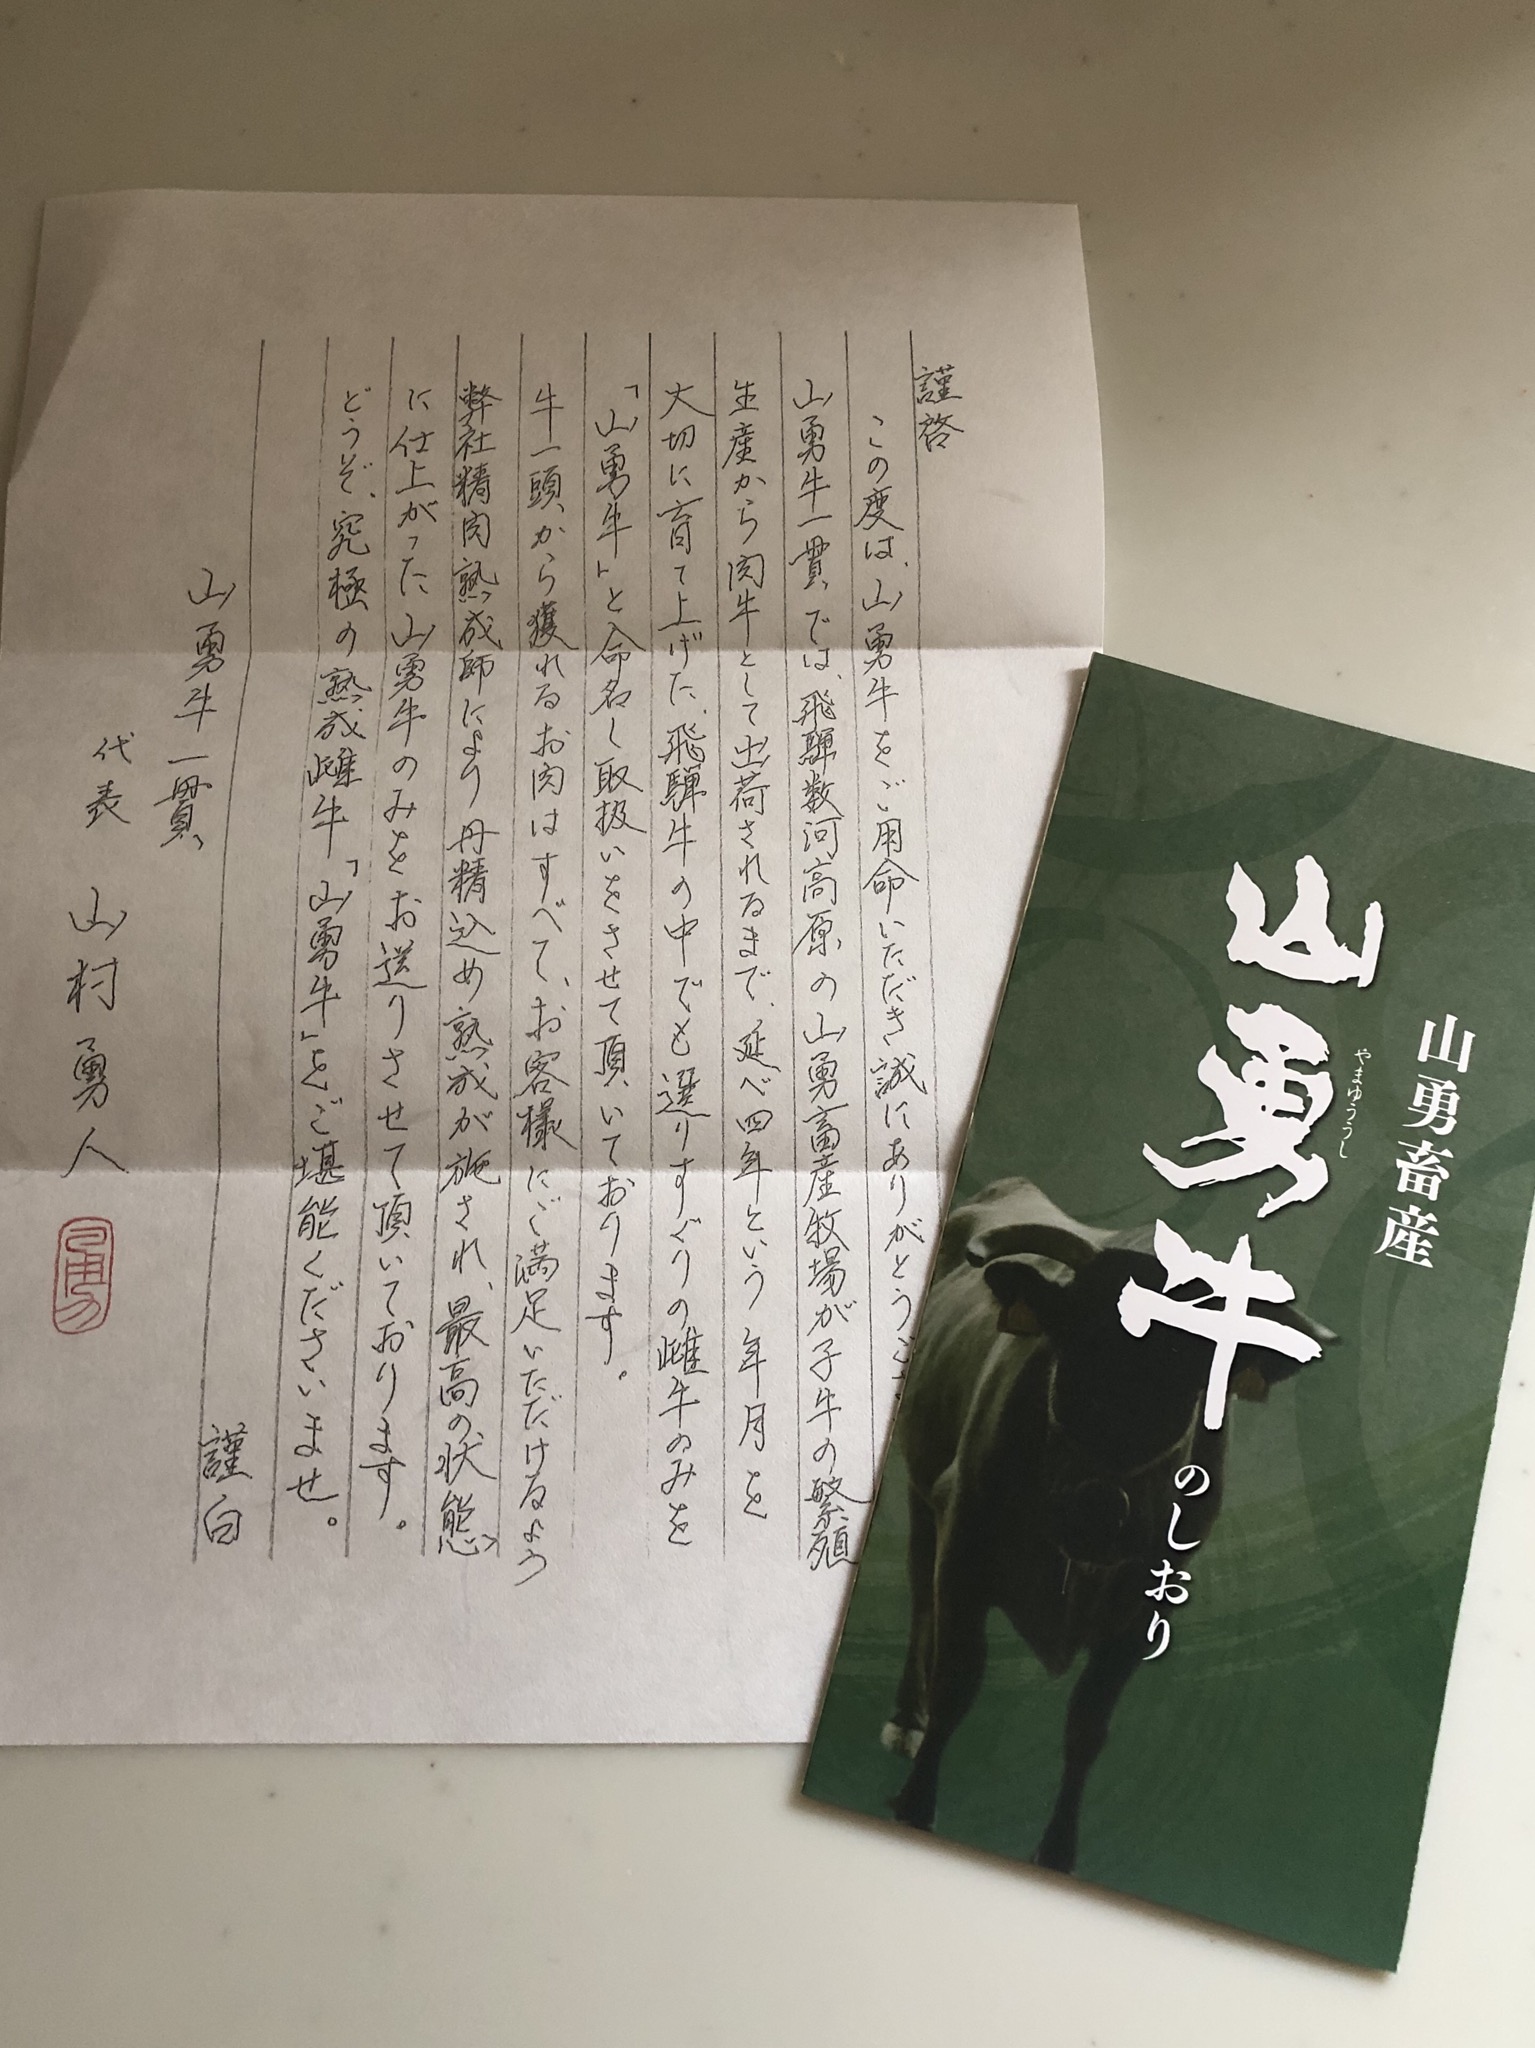 謹啓
この度は、山勇牛をご用命いただき誠にありがとうご
山勇牛一貫では、飛騨数河高原の山勇畜産牧場が子牛の繁殖
生産から肉牛として出荷されるまで、延べ四年という年月を
大切に育て上げた、飛騨牛の中でも選りすぐりの雌牛のみを
「山勇牛」と命名し取扱いをさせて頂いております。
牛一頭から獲れるお肉はすべて、お客様にご満足いただけるよう
弊社精肉熟成師により丹精込め熟成が施され、最高の状態
に仕上がった山勇牛のみをお送りさせて頂いております。
どうぞ、究極の熟成雌牛「山勇牛」をご堪能くださいませ。
謹白
山勇牛一貫
代表 山村勇人
山勇畜産
山勇牛
やまゆううし
のしおり